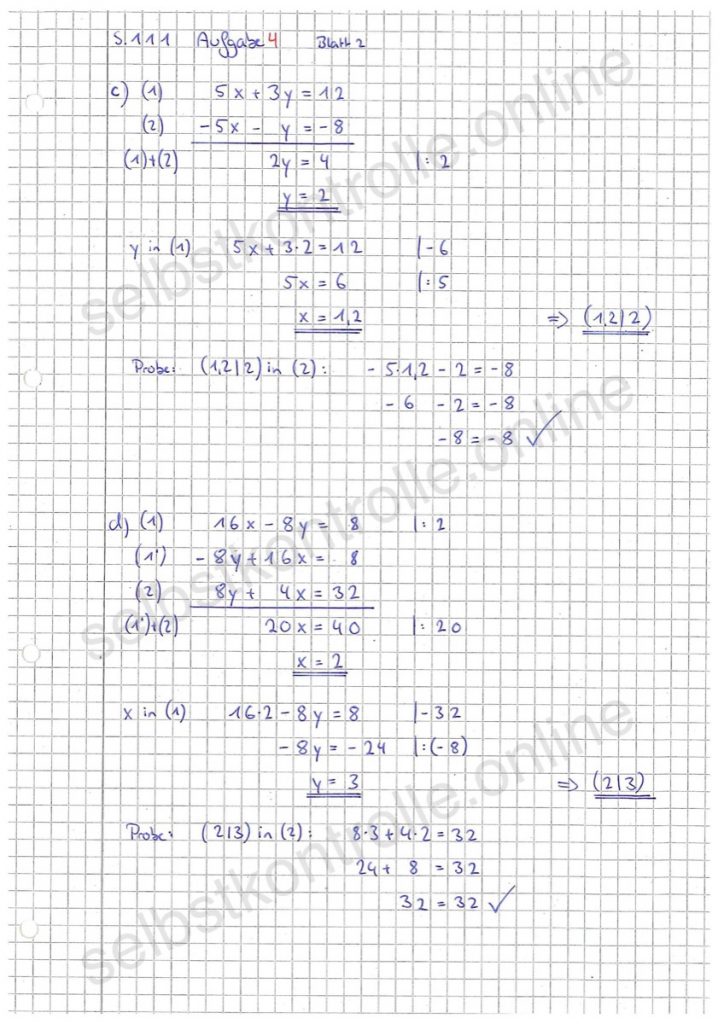 S.111 Aufgabe 4 Blatt 2
c) (1) 5x + 3y = 12
(2) -5x - y = -8
(1)+(2) 2y = 4 |: 2
y = 2
y in (1) 5x + 3·2 = 12 |-6
5x = 6 |: 5
x = 1,2 => (1,2|2)
Probe: (1,2|2) in (2): -5·1,2 - 2 = -8
-6 - 2 = -8
-8 = -8 ✓
d) (1) 16x - 8y = 8 |: 2
(1') -8y + 16x = 8
(2) 8y + 4x = 32
(1')+(2) 20x = 40 |: 20
x = 2
x in (1) 16·2 - 8y = 8 |-32
-8y = -24 |:(-8)
y = 3 => (2|3)
Probe: (2|3) in (2): 8·3 + 4·2 = 32
24 + 8 = 32
32 = 32 ✓
selbstkontrolle.online
selbstkontrolle.online
selbstkontrolle.online